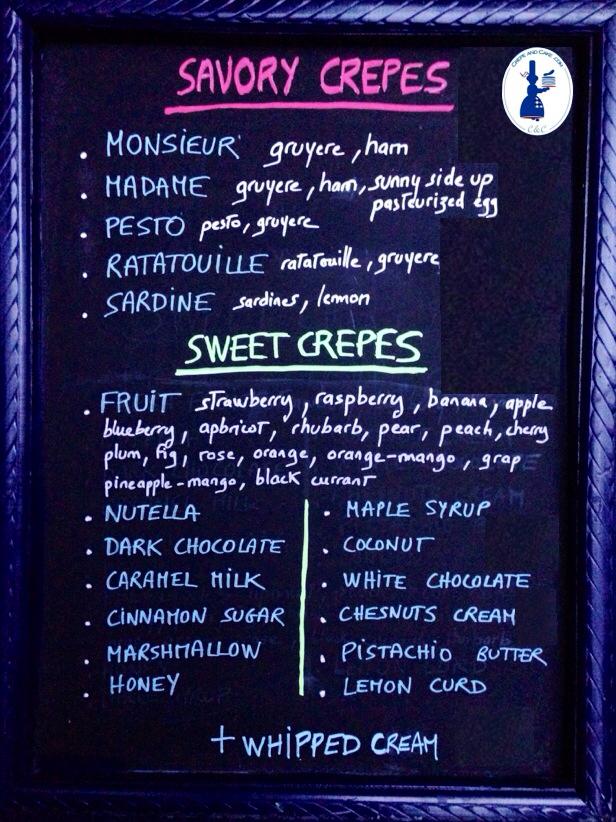 CREPE AND CAKE.COM
C&C
SAVORY CREPES
• MONSIEUR gruyere, ham
• MADAME gruyere, ham, sunny side up
pasteurized egg
• PESTO pesto, gruyere
• RATATOUILLE ratatouille, gruyere
• SARDINE sardines, lemon
SWEET CREPES
• FRUIT strawberry, raspberry, banana, apple
blueberry, apbricot, rhubarb, pear, peach, cherry
plum, fig, rose, orange, orange-mango, grap
pineapple-mango, black currant
• NUTELLA
• DARK CHOCOLATE
• CARAMEL MILK
• CINNAMON SUGAR
• MARSHMALLOW
• HONEY
• MAPLE SYRUP
• COCONUT
• WHITE CHOCOLATE
• CHESNUTS CREAM
• PISTACHIO BUTTER
• LEMON CURD
+ WHIPPED CREAM